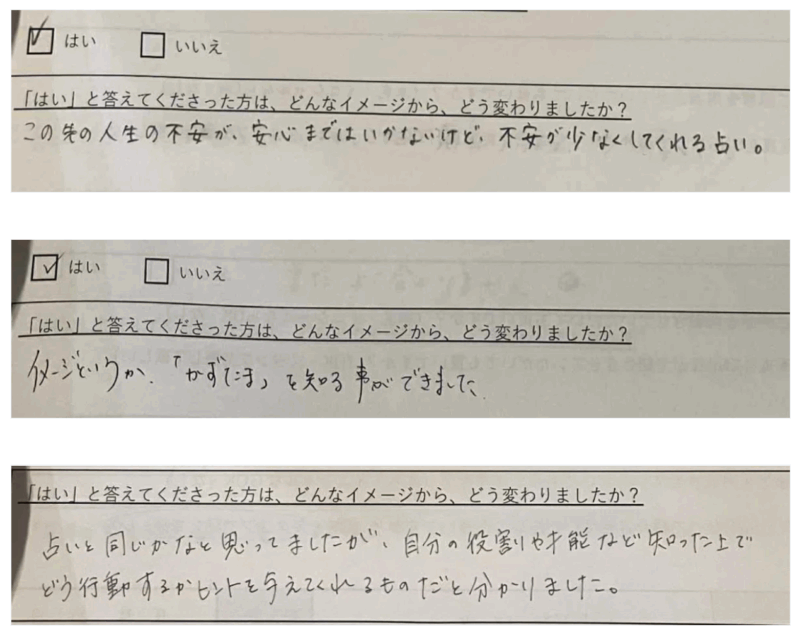 はい いいえ
「はい」と答えてくださった方は、どんなイメージから、どう変わりましたか？
この先の人生の不安が、安心まではいかないけど、不安が少なくしてくれる占い。
はい いいえ
「はい」と答えてくださった方は、どんなイメージから、どう変わりましたか？
イメージというか、「かずたま」を知る事ができました
「はい」と答えてくださった方は、どんなイメージから、どう変わりましたか？
占いと同じかなと思ってましたが、自分の役割や才能など知った上で
どう行動するかヒントを与えてくれるものだと分かりました。